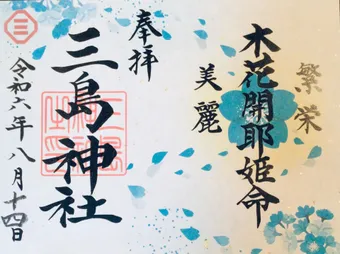 繁栄
木花開耶姫命
美麗
奉拝
三島神社
令和六年八月十四日